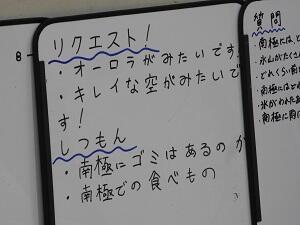 リクエスト!
・オーロラがみたいです!
・キレイな空がみたいで
す!
しつもん
・南極にゴミはあるのか
・南極での食べもの
質問
・南極には、
・氷山がたくさ
・どれくらい
・南極には